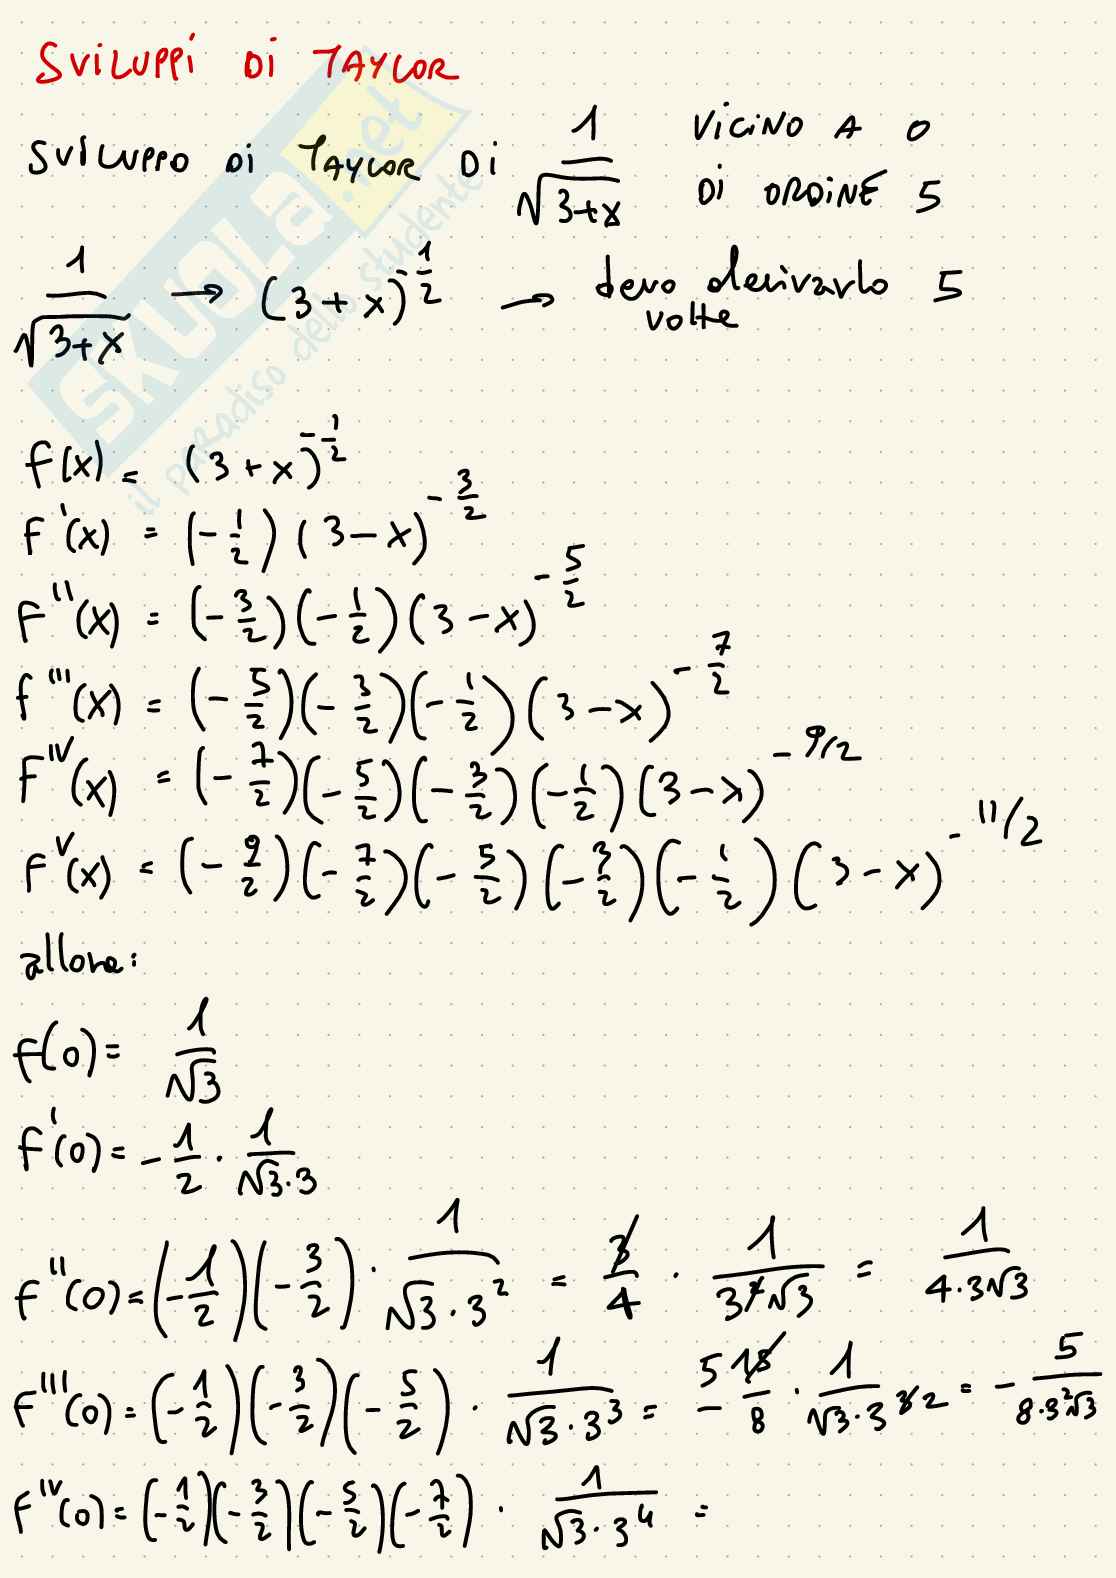 SVILUPPI DI TAYLOR
SVILUPPO DI TAYLOR DI 1/√(3+x) VICINO A 0
DI ORDINE 5
1/√(3+x) → (3+x)^(-1/2) → devo derivarlo 5
volte
f(x) = (3+x)^(-1/2)
f'(x) = (-1/2)(3-x)^(-3/2)
f''(x) = (-3/2)(-1/2)(3-x)^(-5/2)
f'''(x) = (-5/2)(-3/2)(-1/2)(3-x)^(-7/2)
f^IV(x) = (-7/2)(-5/2)(-3/2)(-1/2)(3-x)^(-9/2)
f^V(x) = (-9/2)(-7/2)(-5/2)(-3/2)(-1/2)(3-x)^(-11/2)
allora:
f(0) = 1/√3
f'(0) = -1/2 · 1/(√3·3)
f''(0) = (-1/2)(-3/2) · 1/(√3·3^2) = 3/4 · 1/(3^2√3) = 1/(4·3√3)
f'''(0) = (-1/2)(-3/2)(-5/2) · 1/(√3·3^3) = 5 -15/8 · 1/(√3·3^3 2) = -5/(8·3^2√3)
f^IV(0) = (-1/2)(-3/2)(-5/2)(-7/2) · 1/(√3·3^4) =
SKUOLA.net
il paradiso dello studente